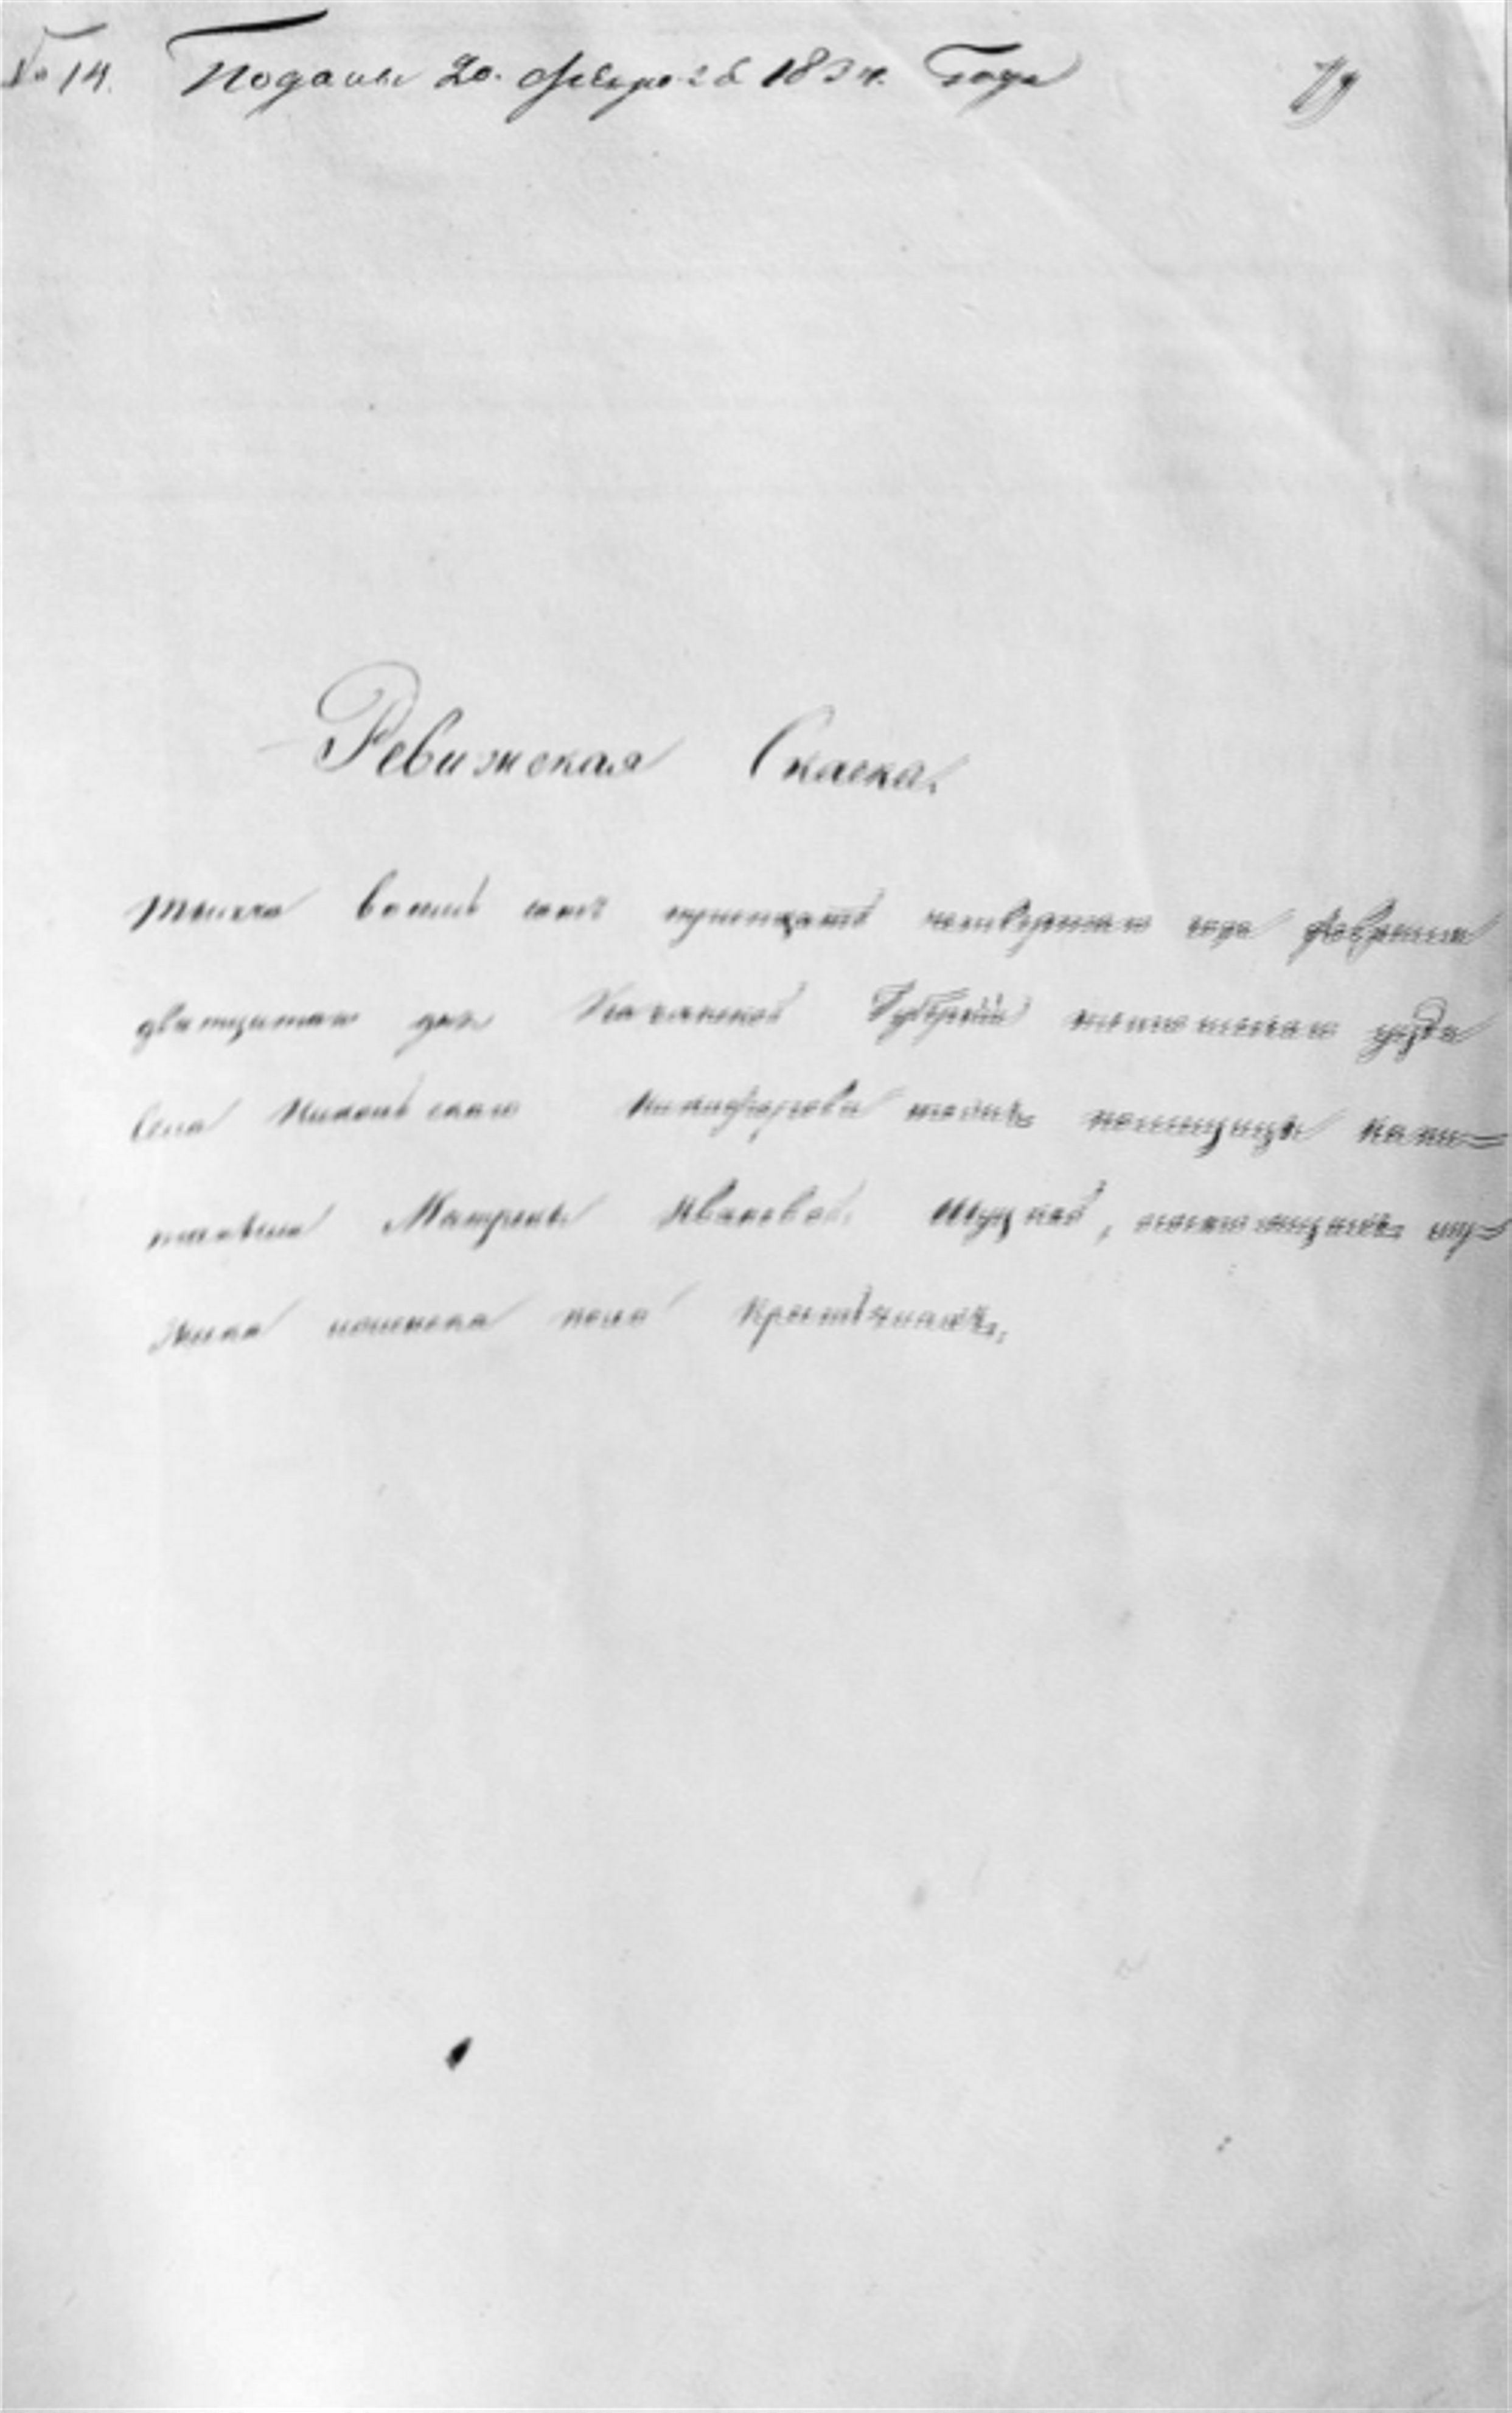 № 14. Поданы 20. февраля 1834. Года 79
Ревижская Скаска.
тысяча восемь сотъ тритцать четвертаго года февраля
дватцатаго дня Казанской Губернiи уезда
села Никольскаго Никифорова тожъ помещицы капи=
танши Матрены Ивановой , состоящимъ му=
жеска женска пола крестьянамъ,